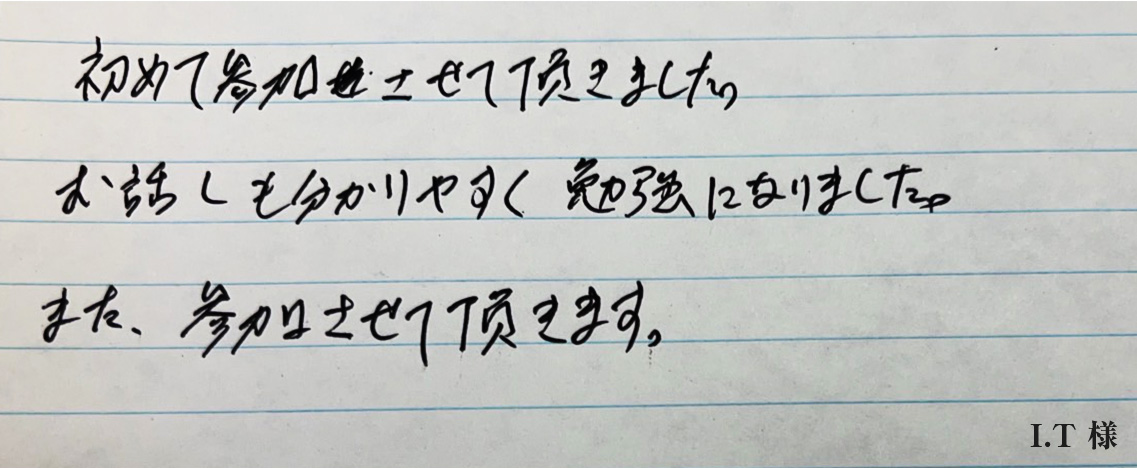 初めて参加させて頂きました。
お話しも分かりやすく勉強になりました。
また、参加させて頂きます。
I.T 様